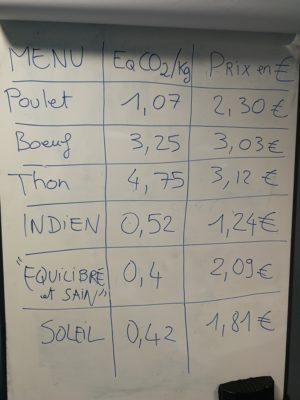 MENU EqCO2/kg PRIX en €
Poulet 1,07 2,30€
Boeuf 3,25 3,03€
Thon 4,75 3,12€
INDIEN 0,52 1,24€
"EQUILIBRÉ et SAIN" 0,4 2,09€
SOLEIL 0,42 1,81€